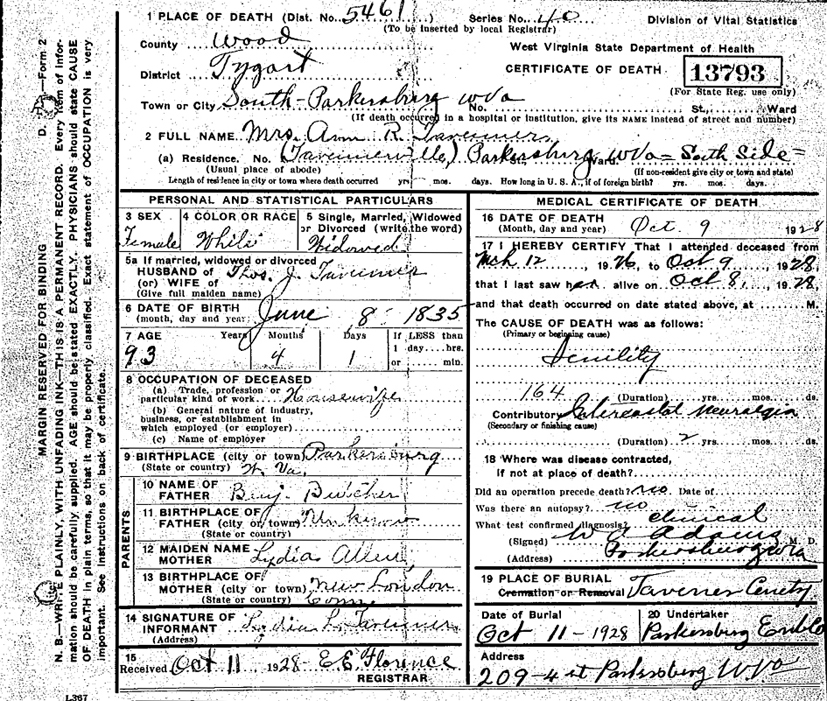 1 PLACE OF DEATH (Dist. No. 5461) Series No. 40 Division of Vital Statistics
(To be inserted by local Registrar)
County Wood West Virginia State Department of Health
District Tygart CERTIFICATE OF DEATH 13793
(For State Reg. use only)
Town or City South-Parkersburg W Va No. St., Ward
(If death occurred in a hospital or institution, give its NAME instead of street and number)
2 FULL NAME Mrs. Ann R. Tavenner
(a) Residence. No. (Tavennerville) Parkersburg Ward. W Va = South Side =
(Usual place of abode) (If non-resident give city or town and state)
Length of residence in city or town where death occurred yrs. mos. days. How long in U. S. A., if of foreign birth? yrs. mos. days.
PERSONAL AND STATISTICAL PARTICULARS
3 SEX 4 COLOR OR RACE 5 Single, Married, Widowed
or Divorced (write the word)
Female White Widowed
5a If married, widowed or divorced
HUSBAND of Thos. J. Tavenner
(or) WIFE of
(Give full maiden name)
6 DATE OF BIRTH June 8 1835
(month, day and year)
7 AGE Years Months Days If LESS than
1 day hrs.
93 4 1 or min.
8 OCCUPATION OF DECEASED
(a) Trade, profession or
particular kind of work Housewife
(b) General nature of industry,
business, or establishment in
which employed (or employer)
(c) Name of employer
9 BIRTHPLACE (city or town) Parkersburg
(State or country) W. Va.
PARENTS
10 NAME OF
FATHER Benj. Butcher
11 BIRTHPLACE OF
FATHER (city or town) Unknown
(State or country)
12 MAIDEN NAME
MOTHER Lydia Allen
13 BIRTHPLACE OF
MOTHER (city or town) New London
(State or country) Conn.
14 SIGNATURE OF
INFORMANT Lydia L. Tavenner
(Address)
15
Received Oct 11, 1928 E E Florence
REGISTRAR
MEDICAL CERTIFICATE OF DEATH
16 DATE OF DEATH
(Month, day and year) Oct. 9 1928
17 I HEREBY CERTIFY That I attended deceased from
Mch 12, 1926, to Oct 9, 1928,
that I last saw her alive on Oct 8, 1928,
and that death occurred on date stated above, at M.
The CAUSE OF DEATH was as follows:
(Primary or beginning cause)
Senility
164 (Duration) yrs. mos. ds.
Contributory Intercostal Neuralgia
(Secondary or finishing cause)
(Duration) 2 yrs. mos. ds.
18 Where was disease contracted,
if not at place of death?
Did an operation precede death? no Date of
Was there an autopsy? no
What test confirmed diagnosis? Clinical
(Signed) W E Adams M. D.
(Address) Parkersburg W Va
19 PLACE OF BURIAL
Cremation or Removal Tavener Cemety
Date of Burial 20 Undertaker
Oct 11-1928 Parkersburg Emb Co
Address
209-4 st Parkersburg W. Va
MARGIN RESERVED FOR BINDING D. Form 2
N. B.—WRITE PLAINLY, WITH UNFADING INK—THIS IS A PERMANENT RECORD. Every item of infor-
mation should be carefully supplied. AGE should be stated EXACTLY. PHYSICIANS should state CAUSE
OF DEATH in plain terms, so that it may be properly classified. Exact statement of OCCUPATION is very
important. See instructions on back of certificate.
L367